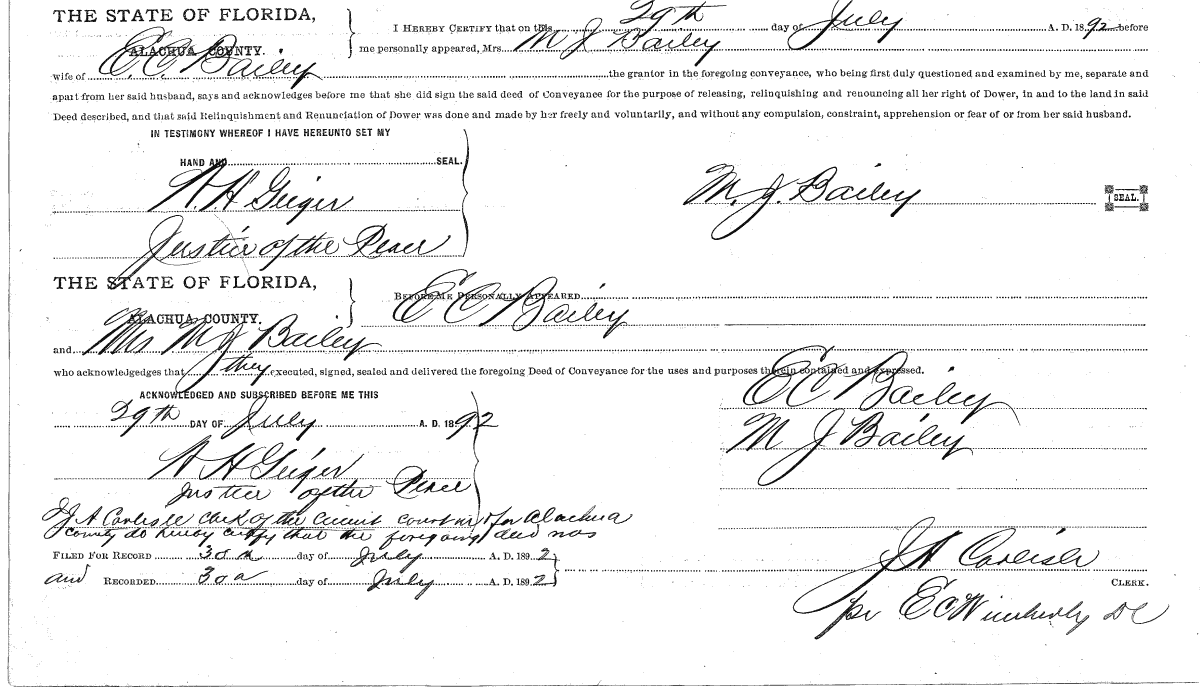 THE STATE OF FLORIDA,
ALACHUA COUNTY.
I HEREBY CERTIFY that on this 29th day of July A. D. 1892 before
me personally appeared, Mrs. M J Bailey
wife of E. C. Bailey the grantor in the foregoing conveyance, who being first duly questioned and examined by me, separate and
apart from her said husband, says and acknowledges before me that she did sign the said deed of Conveyance for the purpose of releasing, relinquishing and renouncing all her right of Dower, in and to the land in said
Deed described, and that said Relinquishment and Renunciation of Dower was done and made by her freely and voluntarily, and without any compulsion, constraint, apprehension or fear of or from her said husband.
IN TESTIMONY WHEREOF I HAVE HEREUNTO SET MY
HAND AND SEAL.
H Geiger
M. J. Bailey SEAL.
Justice of the Peace
THE STATE OF FLORIDA,
ALACHUA COUNTY.
BEFORE ME PERSONALLY APPEARED
E C Bailey
and Mrs M J Bailey
who acknowledgedges that they executed, signed, sealed and delivered the foregoing Deed of Conveyance for the uses and purposes therein contained and expressed.
ACKNOWLEDGED AND SUBSCRIBED BEFORE ME THIS
29th DAY OF July A. D. 1892
E C Bailey
M J Bailey
H Geiger
Justice of the Peace
J A Carlisle clerk of the circuit court in & for Alachua
county do hereby certify that the foregoing deed was
FILED FOR RECORD 30 day of July A. D. 1892
and RECORDED 30 day of July A. D. 1892
J A Carlisle
CLERK.
per E C Wimberly DC